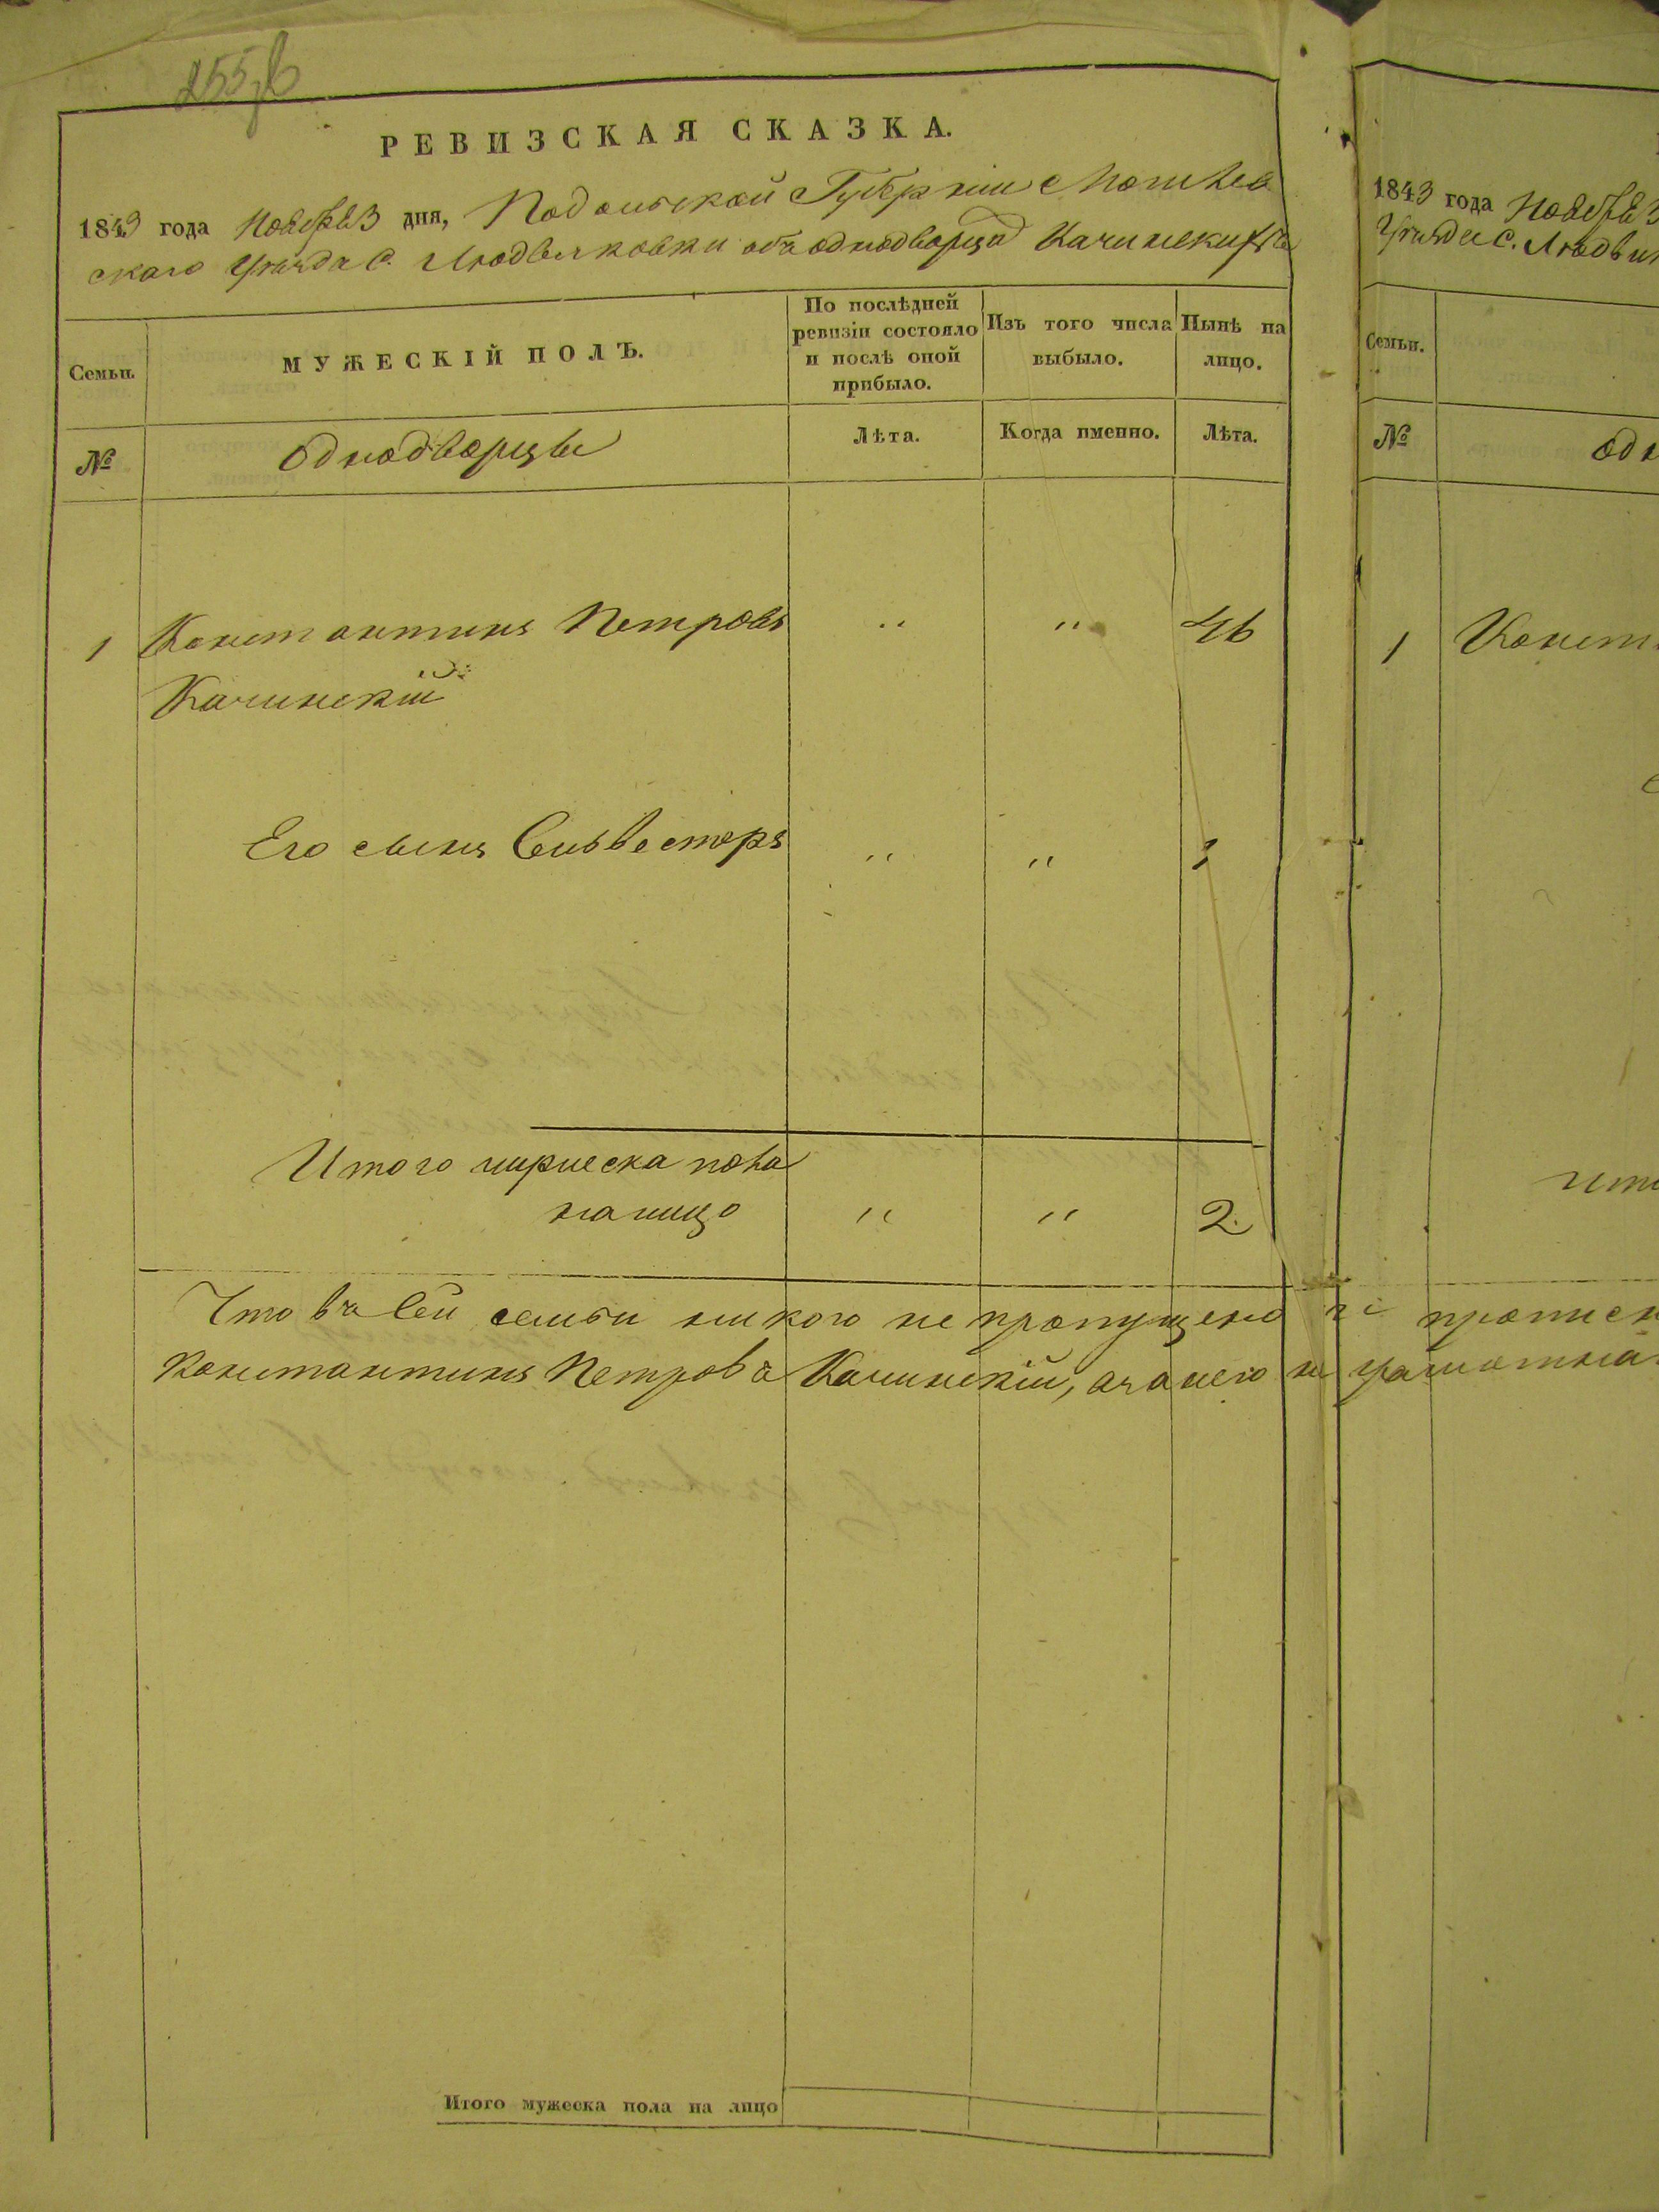 255
РЕВИЗСКАЯ СКАЗКА.
1843 года Ноября 3 дня, Подольской Губерніи Могилев
скаго Уѣзда с. Людвиковки объ однодворцѣ Качинскихъ
Семьи.
МУЖЕСКІЙ ПОЛЪ.
По послѣдней ревизіи состояло и послѣ оной прибыло.
Изъ того числа выбыло.
Нынѣ на лицо.
№
Однодворцы
Лѣта.
Когда именно.
Лѣта.
1 Константинъ Петровъ " " 46
Качинскій
Его сынъ Сильвестеръ " " 1
Итого мужеска пола
налицо " " 2.
Что въ сей семьи никого не пропущено и прописн
Константинъ Петровъ Качинскій, а за него не грамотна
Итого мужеска пола на лицо
1843 года Ноября 3
Уѣзда с. Людвик
Семьи.
№
Одн
1 Конст
Ито